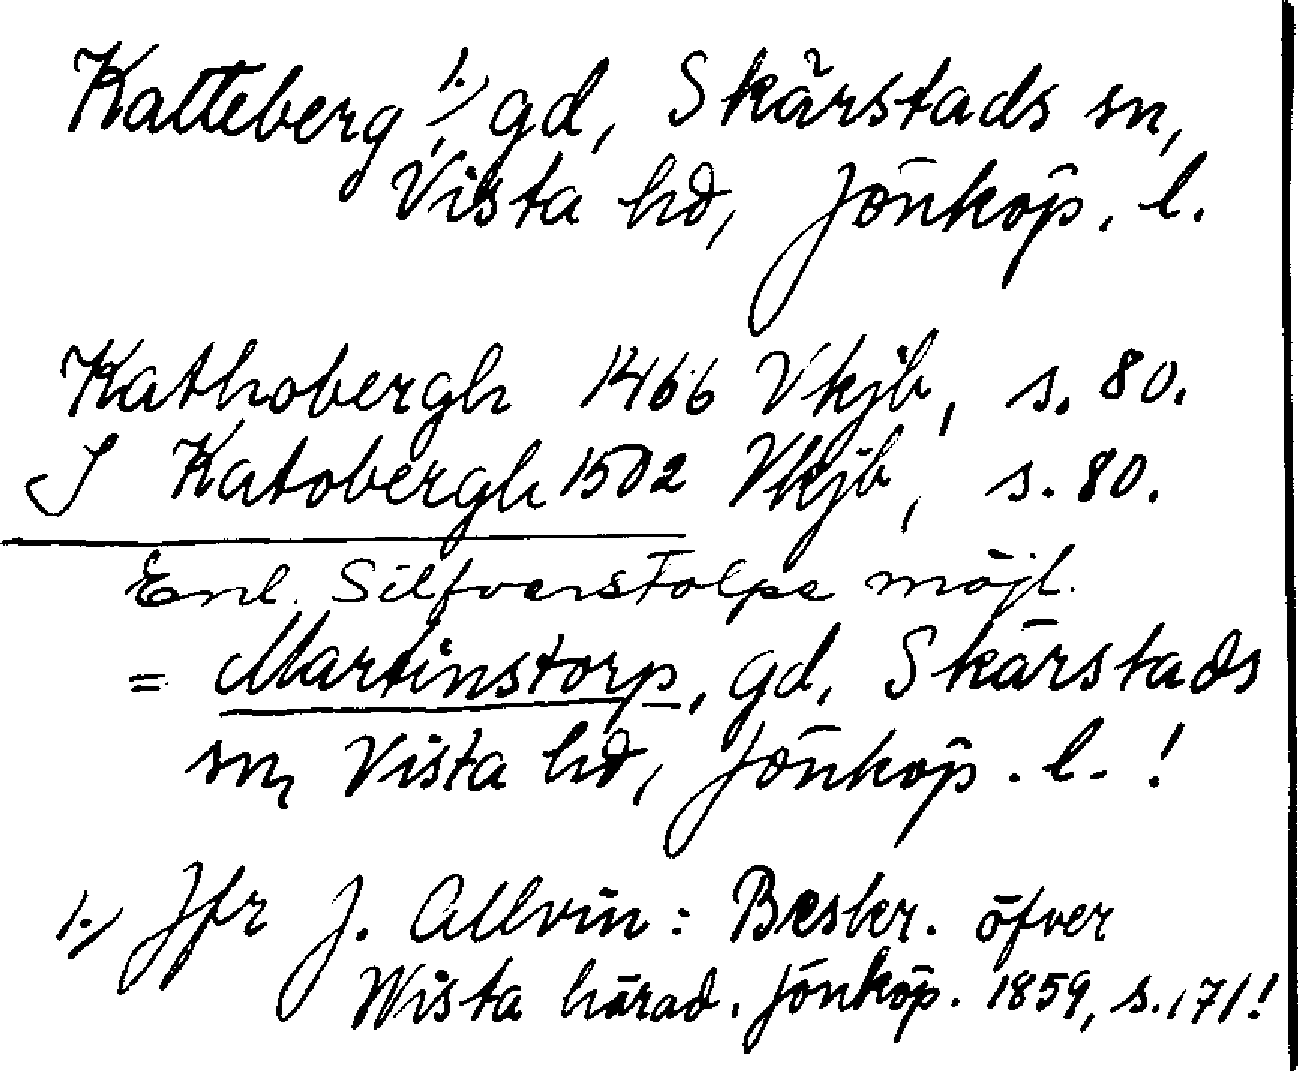 Katteberg 1.), gd, Skärstads sn,
Vista hd, Jönköp. l.
Kathobergh 1466 Vkjb, s. 80.
J Katobergh 1502 Vkjb, s. 80.
Enl. Silfverstolpe möjl.
= Martinstorp, gd, Skärstads
sn, Vista hd, Jönköp. l. !
1.) Jfr J. Allvin: Beskr. öfver
Wista härad. Jönköp. 1859, s. 171!